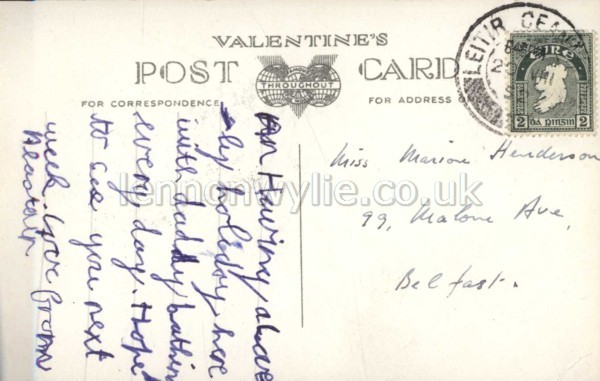 VALENTINE'S
POST CARD
THROUGHOUT
FOR CORRESPONDENCE
FOR ADDRESS
LEITIR CEAN
ÉIRE
2 dá pingin 2
Am Having a
holiday here
with daddy bathing
every day. Hope
to see you next
week. love from
Alastair
Miss Marion Henderson
99, Malone Ave,
Belfast.
lennonwylie.co.uk